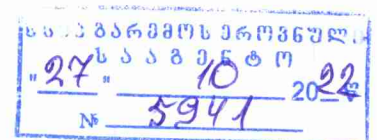 სსიპ გარემოს ეროვნული
სააგენტო
"27" 10 2022
№ 5941